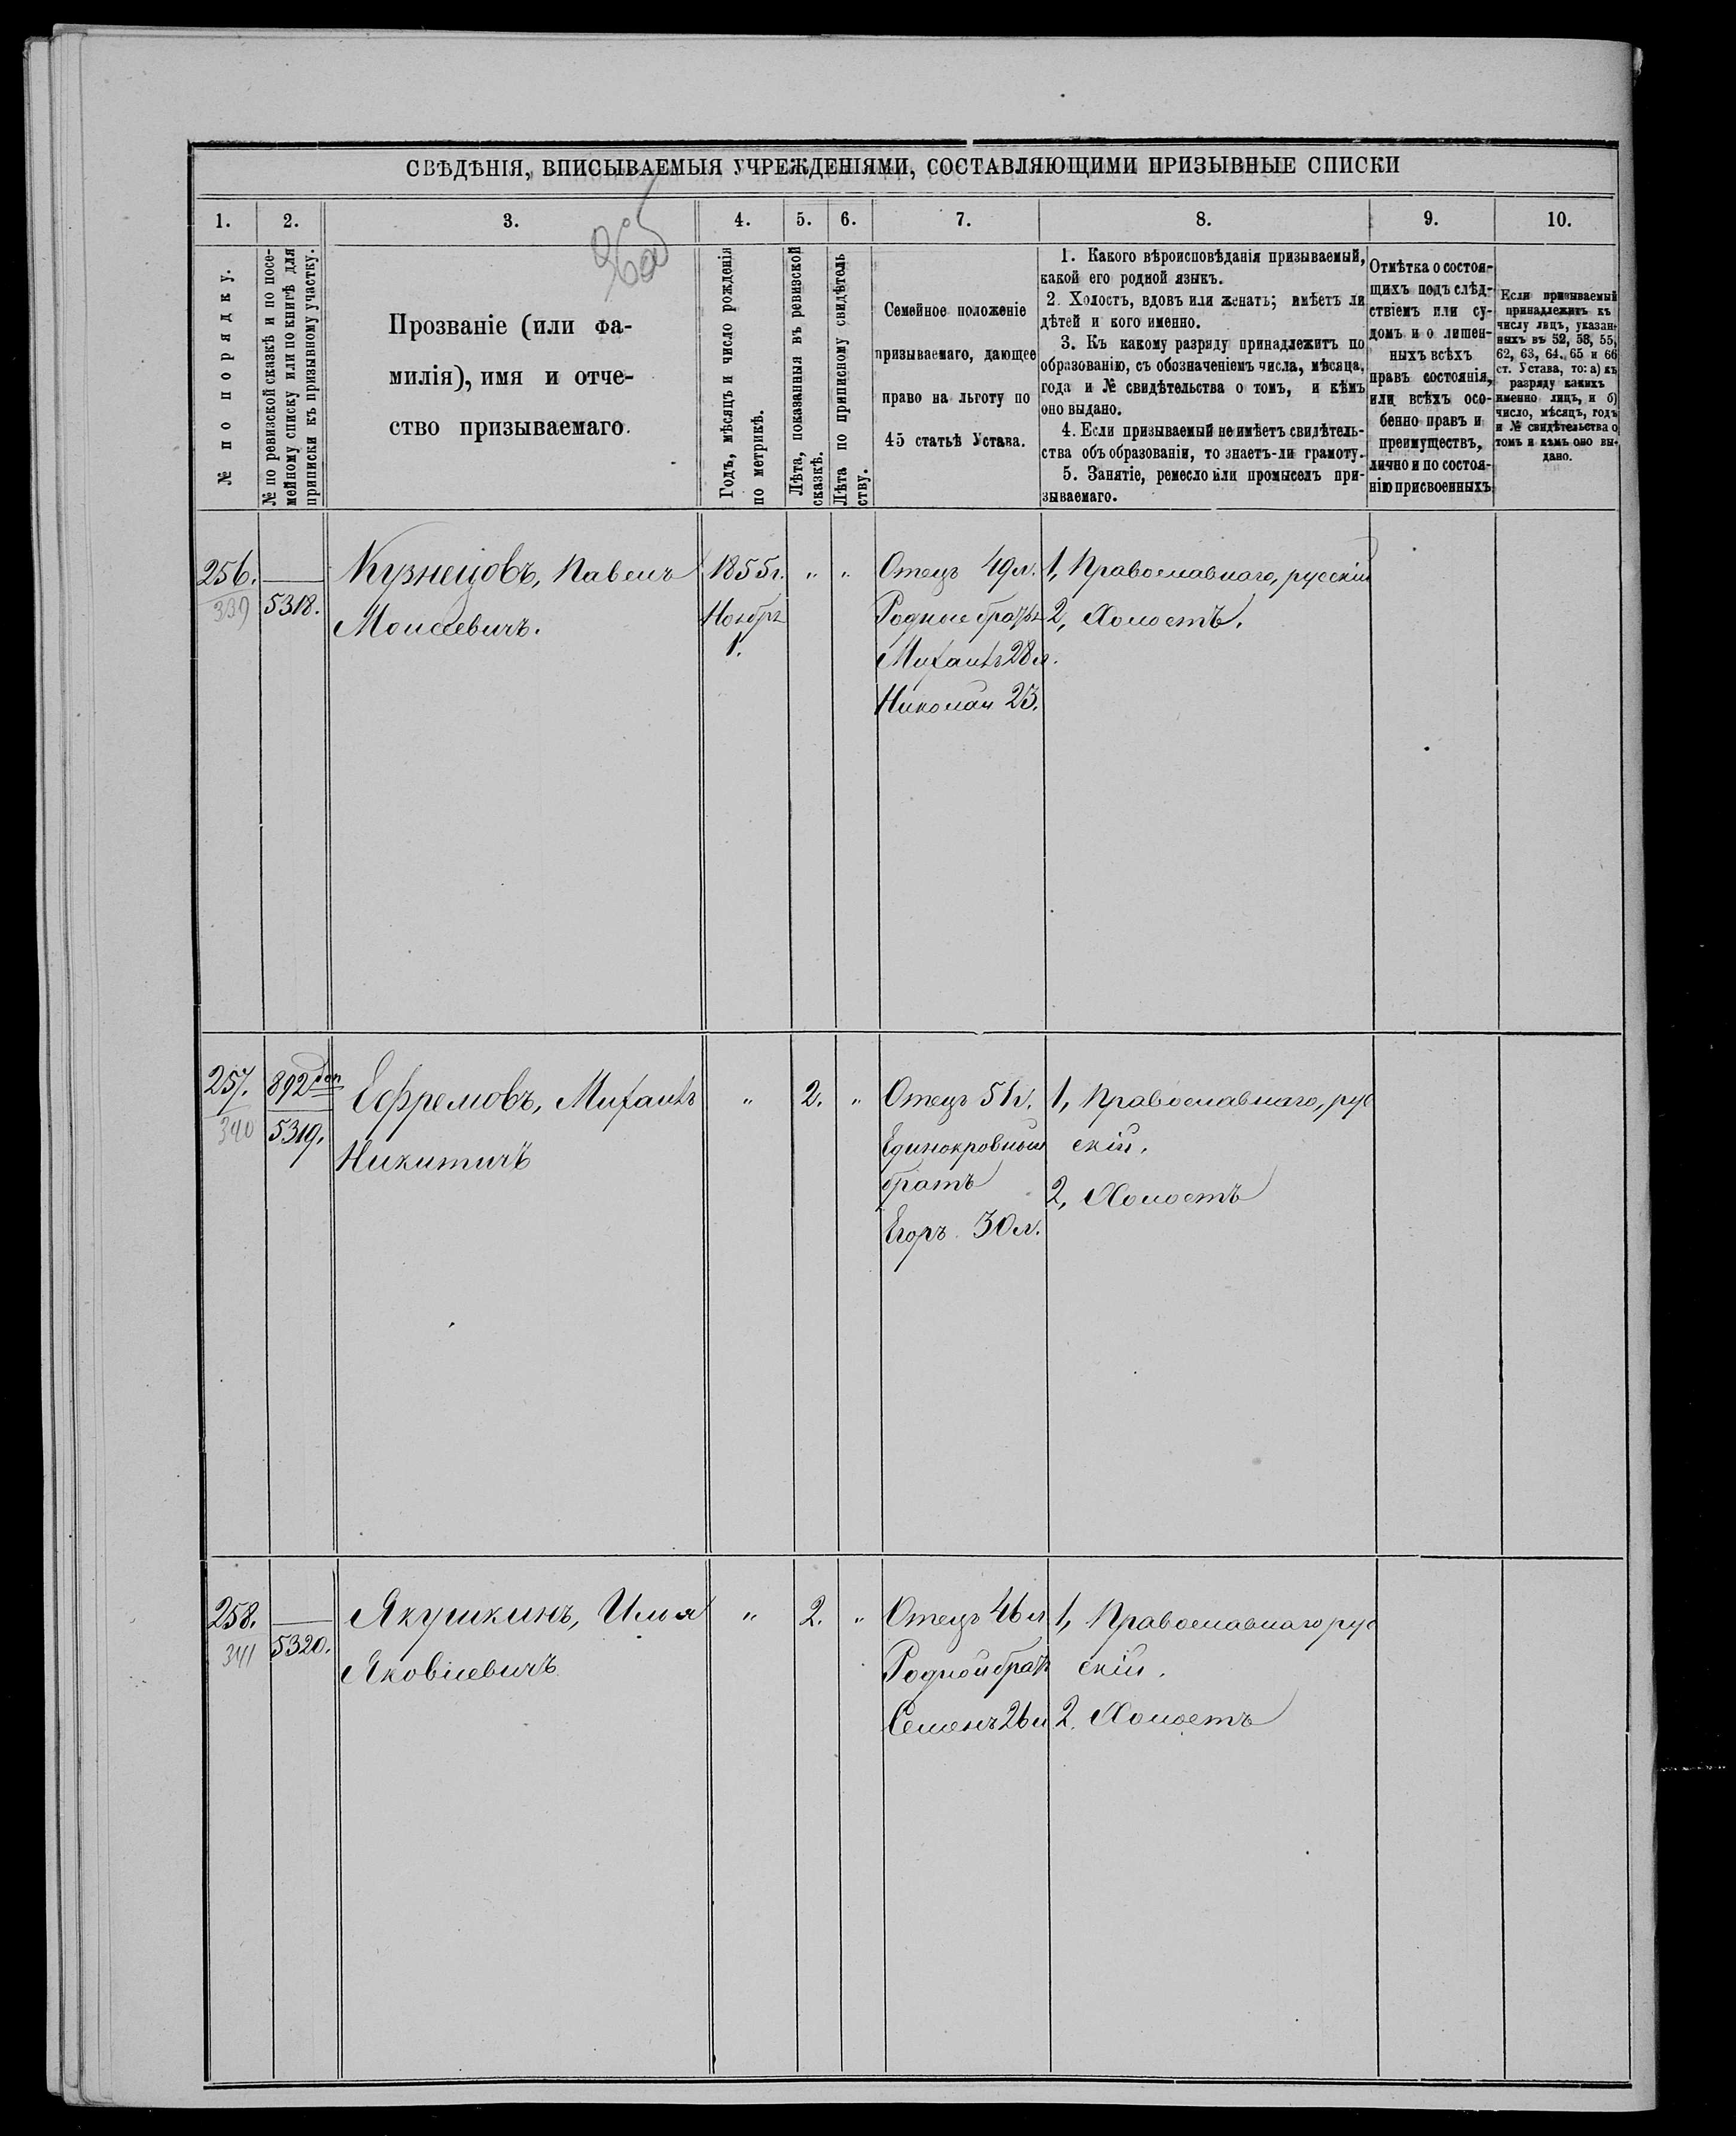 СВѢДѢНІЯ, ВПИСЫВАЕМЫЯ УЧРЕЖДЕНІЯМИ, СОСТАВЛЯЮЩИМИ ПРИЗЫВНЫЕ СПИСКИ
1. 2. 3. 4. 5. 6. 7. 8. 9. 10.
№ по порядку.
№ по ревизской сказкѣ и по посе-
мейному списку или по книгѣ для
приписки къ призывному участку.
Прозваніе (или фа-
милія), имя и отче-
ство призываемаго.
Годъ, мѣсяцъ и число рожденія
по метрикѣ.
Лѣта, показанныя въ ревизской
сказкѣ.
Лѣта по приписному свидѣтель
ству.
Семейное положеніе
призываемаго, дающее
право на льготу по
45 статьѣ Устава.
1. Какого вѣроисповѣданія призываемый,
какой его родной языкъ.
2. Холостъ, вдовъ или женатъ; имѣетъ ли
дѣтей и кого именно.
3. Къ какому разряду принадлежитъ по
образованію, съ обозначеніемъ числа, мѣсяца,
года и № свидѣтельства о томъ, и кѣмъ
оно выдано.
4. Если призываемый не имѣетъ свидѣтель-
ства объ образованіи, то знаетъ-ли грамоту.
5. Занятіе, ремесло или промыселъ при-
зываемаго.
Отмѣтка о состоя-
щихъ подъ слѣд-
ствіемъ или су-
домъ и о лишен-
ныхъ всѣхъ
правъ состоянія,
или всѣхъ осо-
бенно правъ и
преимуществъ,
лично и по состоя-
нію присвоенныхъ
Если призываемый
принадлежитъ къ
числу лицъ, указан-
ныхъ въ 52, 53, 55,
62, 63, 64, 65 и 66
ст. Устава, то: а) къ
разряду какихъ
именно лицъ, и б)
число, мѣсяцъ, годъ
и № свидѣтельства о
томъ и кѣмъ оно вы-
дано.
256.
339
5318.
Кузнецовъ, Павелъ
Моисеевичъ.
1855 г.
Ноябрь
1.
" "
Отецъ 49 л.
Родные братья
Михаилъ 28 л.
Николай 23.
1, Православнаго, русскій
2, Холостъ.
257.
340
892 доп
5319.
Ефремовъ, Михаилъ
Никитичъ
" 2. "
Отецъ 51 г.
Единокровный
братъ
Егоръ 30 л.
1, Православнаго, рус
скій.
2, Холостъ
258.
341
5320.
Якушкинъ, Илья
Яковлевичъ
" 2. "
Отецъ 46 л
Родной братъ
Семенъ 26 л
1, Православнаго рус
скій.
2. Холостъ